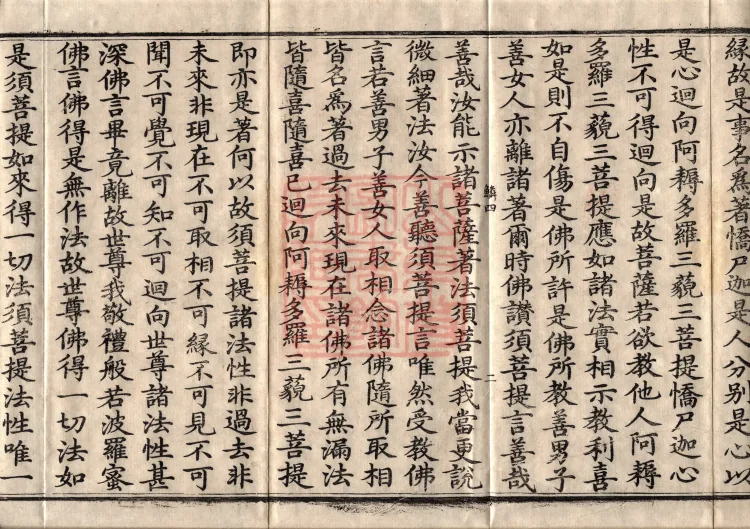 縁故是事名爲著憍尸迦是人分别是心以
是心迴向阿耨多羅三藐三菩提憍尸迦心
性不可得迴向是故菩薩若欲教他人阿耨
多羅三藐三菩提應如諸法實相示教利喜
如是則不自傷是佛所許是佛所教善男子
善女人亦離諸著爾時佛讃須菩提言善哉
鱗四
二
善哉汝能示諸菩薩著法須菩提我當更說
微細著法汝今善聽須菩提言唯然受教佛
言若善男子善女人取相念諸佛隨所取相
皆名爲著過去未來現在諸佛所有無漏法
皆隨喜隨喜已迴向阿耨多羅三藐三菩提
即亦是著何以故須菩提諸法性非過去非
未來非現在不可取相不可縁不可見不可
聞不可覺不可知不可迴向世尊諸法性甚
深佛言畢竟離故世尊我敬禮般若波羅蜜
佛言佛得是無作法故世尊佛得一切法如
是須菩提如來得一切法須菩提法性唯一